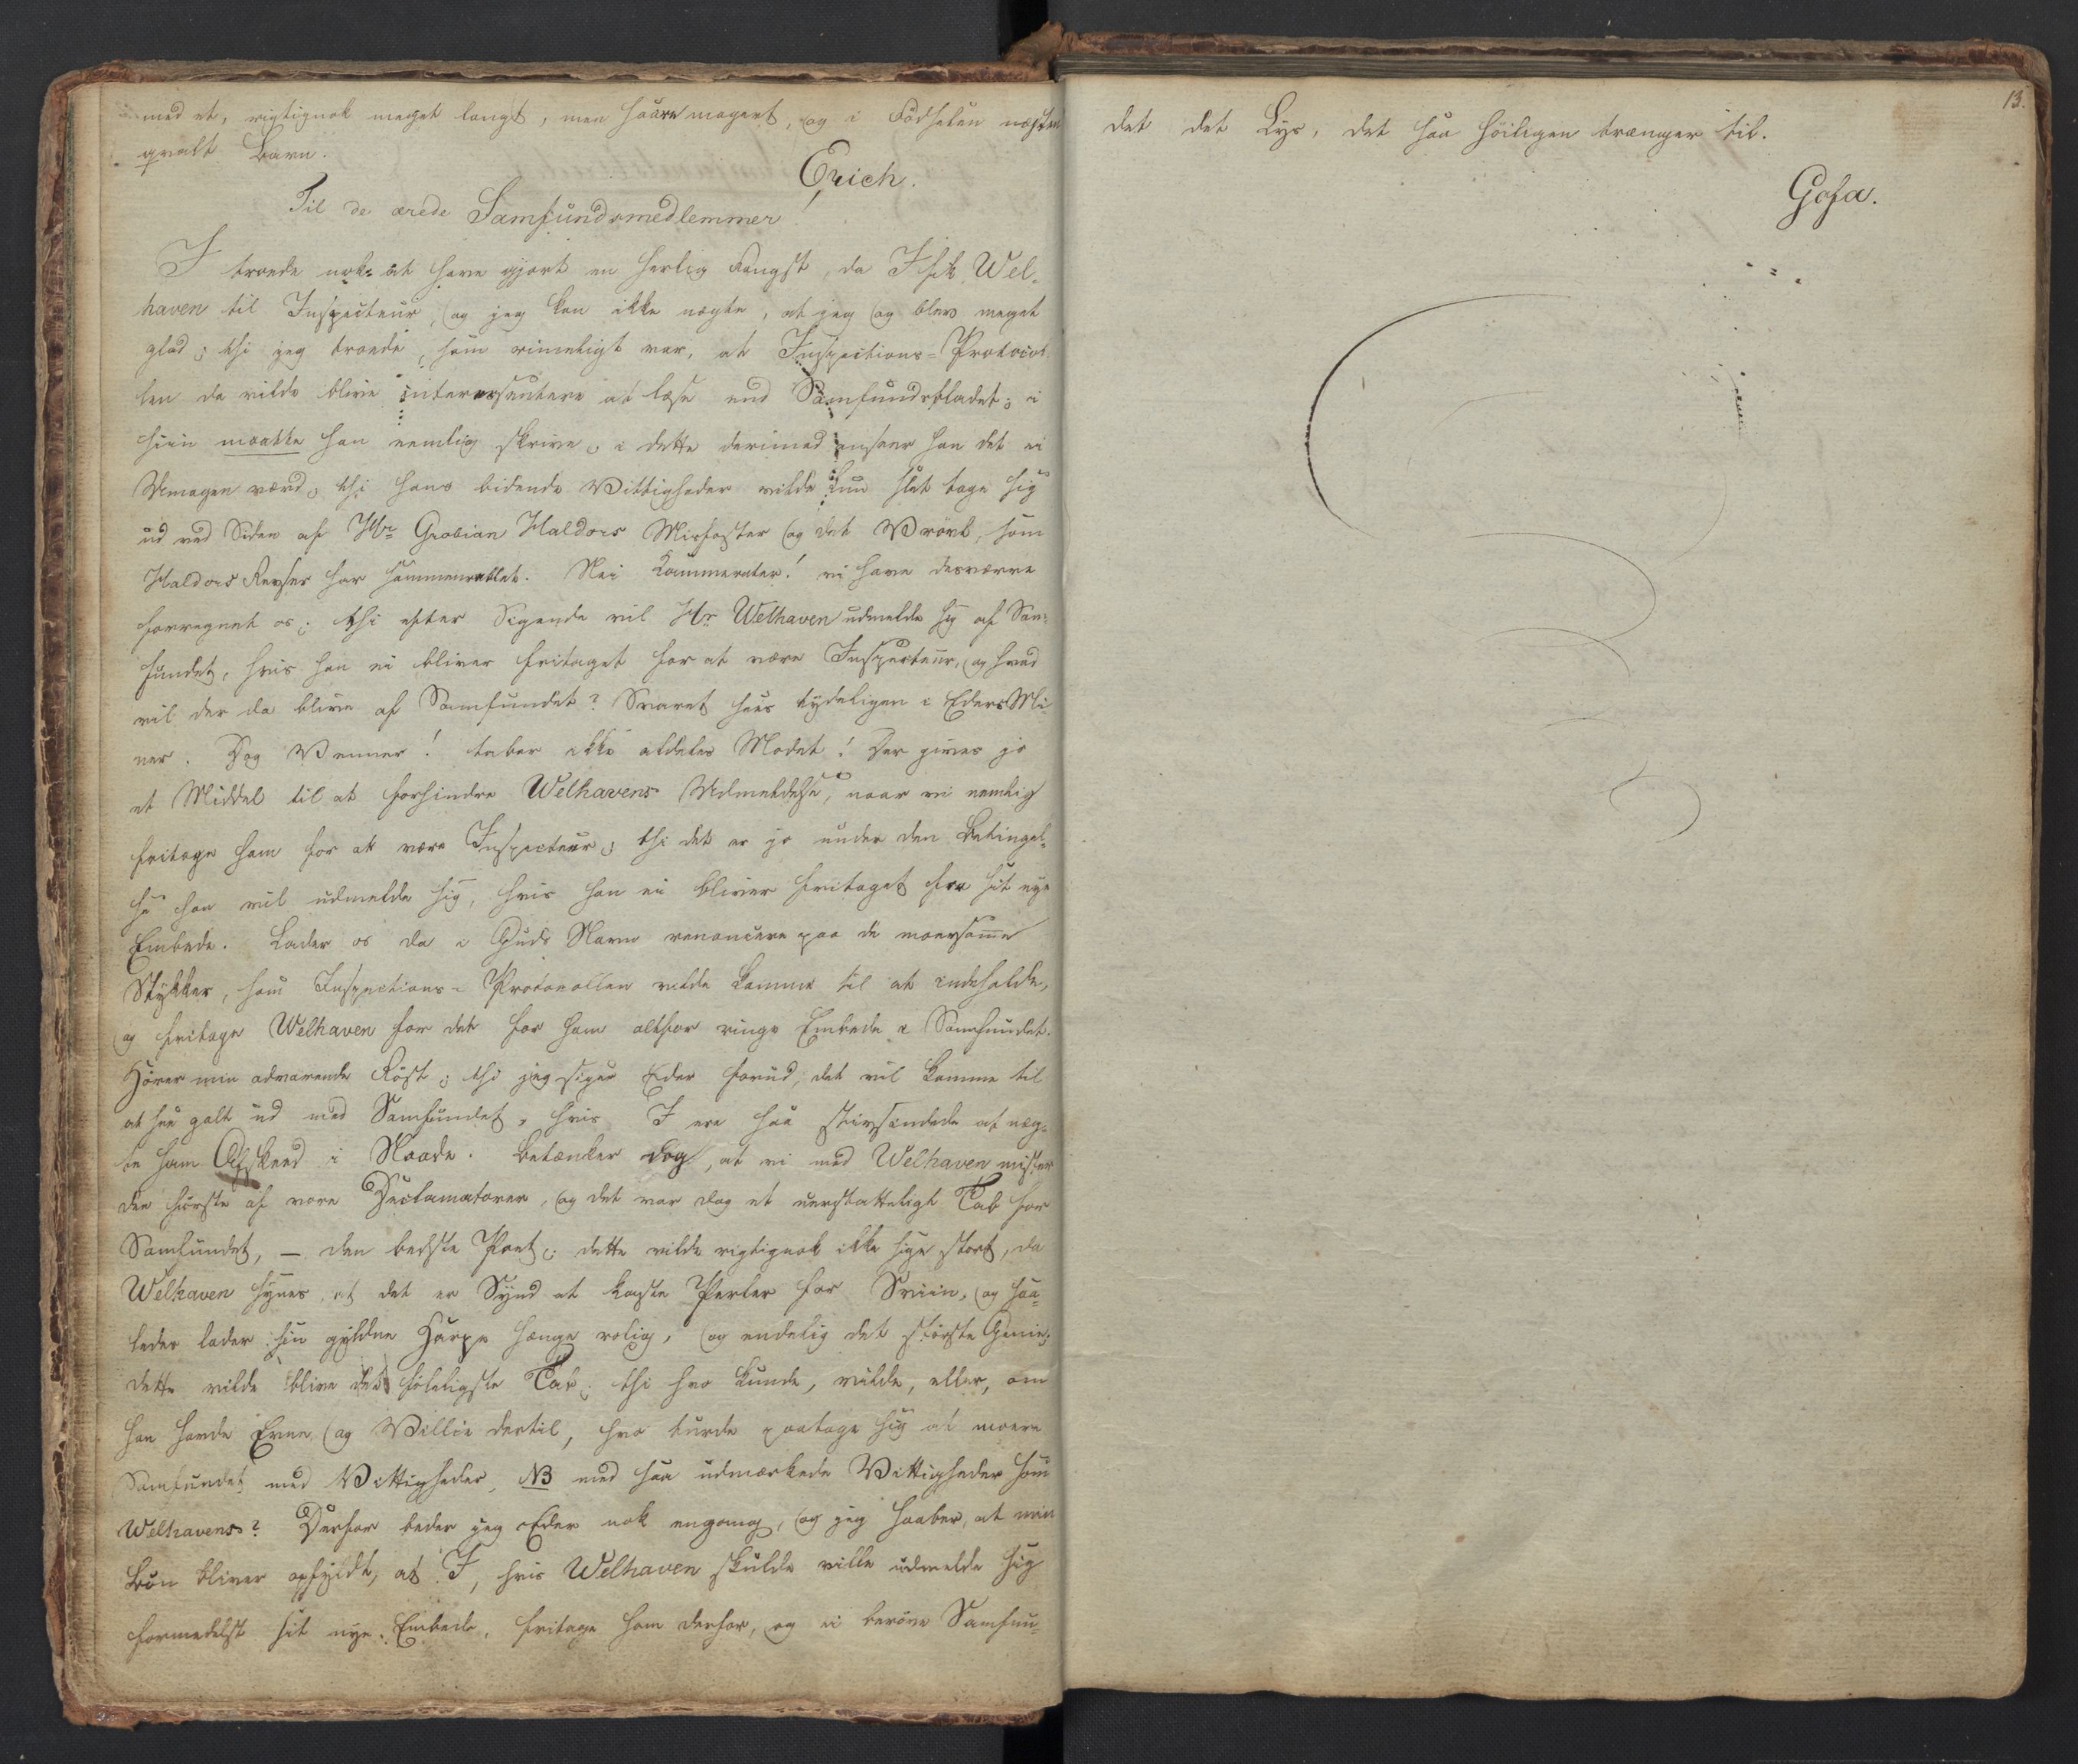 med et, rigtignok meget langt, men saare magert, og i Födselen næsten
qvalt Barn.
Erich.
Til de ærede Samfundsmedlemmer!
I troede nok at have gjort en herlig Fangst, da I fik Wel-
haven til Inspecteur, og jeg kan ikke nægte, at jeg og blev meget
glad; thi jeg troede, som rimeligt var, at Inspections-Protocol-
len da vilde blive interessantere at læse end Samfundsbladet; i
hiin maatte han nemlig skrive, i dette derimod anseer han det ei
Umagen værd, thi hans bidende Vittigheder vilde kun slet tage sig
ud ved Siden af Hr Grobian Haldors Misfoster og det Vrövl, som
Haldors Revser har sammenrablet. Nei Kammerater! vi have desværre
forregnet os; thi efter Sigende vil Hr Welhaven udmelde sig af Sam-
fundet, hvis han ei bliver fritaget for at være Inspecteur, og hvad
vil der da blive af Samfundet? Svaret sees tydeligen i Eders Mi-
ner. Dog Venner! taber ikke aldeles Modet! Der gives jo
et Middel til at forhindre Welhavens Udmeldelse, naar vi nemlig
fritage ham for at være Inspecteur; thi det er jo under den Betingel-
se han vil udmelde sig, hvis han ei bliver fritaget fra sit nye
Embede. Lader os da i Guds Navn renoncere paa de moersomme
Stykker, som Inspections-Protocollen vilde komme til at indeholde,
og fritage Welhaven for det for ham altfor ringe Embede i Samfundet.
Hörer min advarende Röst; thi jeg siger Eder forud, det vil komme til
at see galt ud med Samfundet, hvis I ere saa stivsindede at næg-
te ham Afskeed i Naade. Betænker dog, at vi med Welhaven mister
den förste af vore Declamatorer, og det var dog et uerstatteligt Tab for
Samfundet, — den bedste Poet; dette vilde rigtignok ikke sige stort, da
Welhaven synes, at det er Synd at kaste Perler for Sviin, og saa-
ledes lader sin gyldne Harpe hænge rolig, og endelig det störste Genie;
dette vilde blive det föleligste Tab; thi hvo kunde, vilde, eller, om
han havde Evne og Villie dertil, hvo turde paatage sig at moere
Samfundet med Vittigheder, NB med saa udmærkede Vittigheder som
Welhavens? Derfor beder jeg Eder nok engang, og jeg haaber, at min
Bön bliver opfyldt, at I, hvis Welhaven skulde ville udmelde sig
formedelst sit nye Embede, fritage ham derfor, og ei beröve Samfun-
13.
det det Lys, det saa höiligen trænger til.
Gofa.